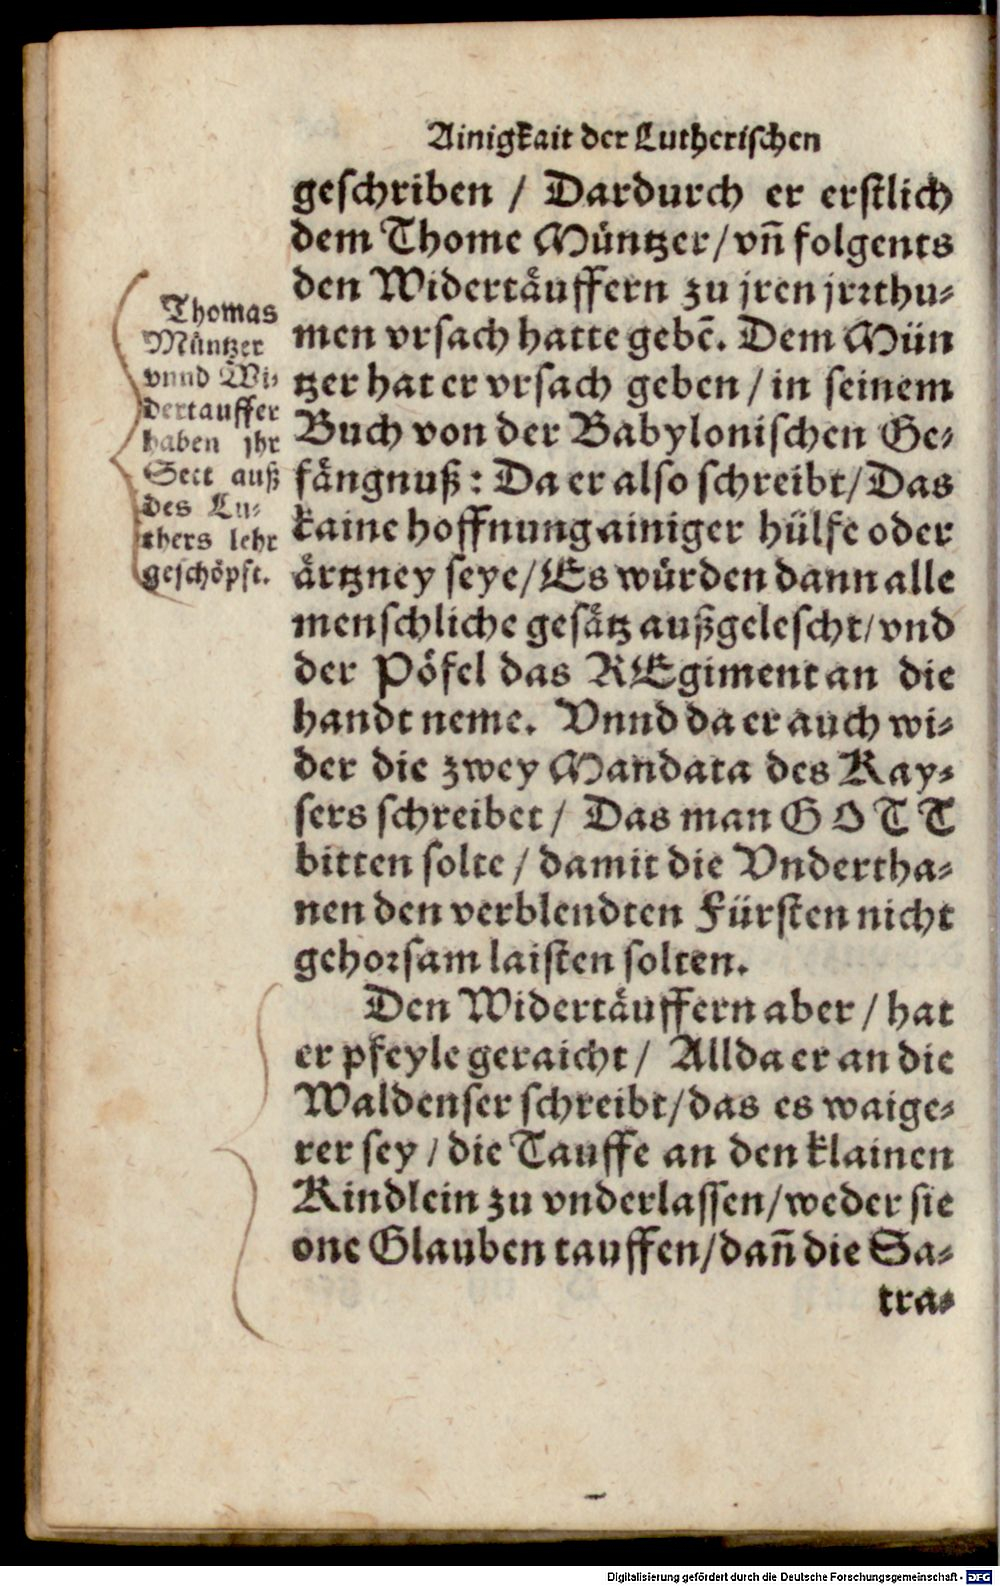 Ainigkait der Lutherischen
geschriben / Dardurch er erstlich
dem Thome Müntzer / vñ folgents
den Widertäuffern zu jren jrrthu-
men vrsach hatte gebē. Dem Mün
tzer hat er vrsach geben / in seinem
Buch von der Babylonischen Ge-
fängnuß : Da er also schreibt / Das
kaine hoffnung ainiger hülfe oder
ärtzney seye / Es würden dann alle
menschliche gesätz außgelescht / vnd
der Pöfel das REgiment an die
handt neme. Vnnd da er auch wi-
der die zwey Mandata des Kay-
sers schreibet / Das man GOTT
bitten solte / damit die Vndertha-
nen den verblendten Fürsten nicht
gehorsam laisten solten.
Den Widertäuffern aber / hat
er pfeyle geraicht / Allda er an die
Waldenser schreibt / das es waige-
rer sey / die Tauffe an den klainen
Kindlein zu vnderlassen / weder sie
one Glauben tauffen / dañ die Sa-
tra-
Thomas
Müntzer
vnnd Wi-
dertauffer
haben jhr
Sect auß
des Lu-
thers lehr
geschöpft.
Digitalisierung gefördert durch die Deutsche Forschungsgemeinschaft - DFG